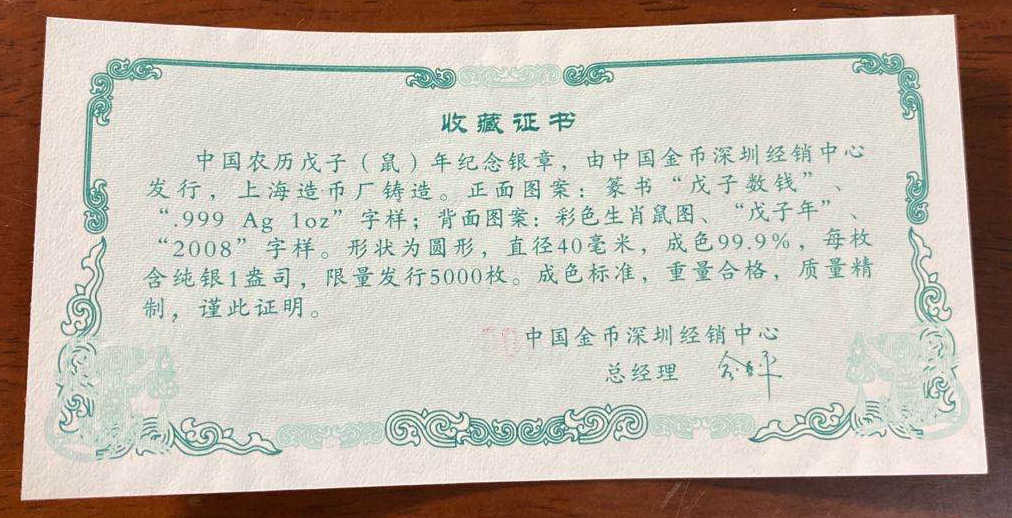 收藏证书
中国农历戊子（鼠）年纪念银章，由中国金币深圳经销中心
发行，上海造币厂铸造。正面图案：篆书“戊子数钱”、
“.999 Ag 1oz”字样；背面图案：彩色生肖鼠图、“戊子年”、
“2008”字样。形状为圆形，直径40毫米，成色99.9%，每枚
含纯银1盎司，限量发行5000枚。成色标准，重量合格，质量精
制，谨此证明。
中国金币深圳经销中心
总经理